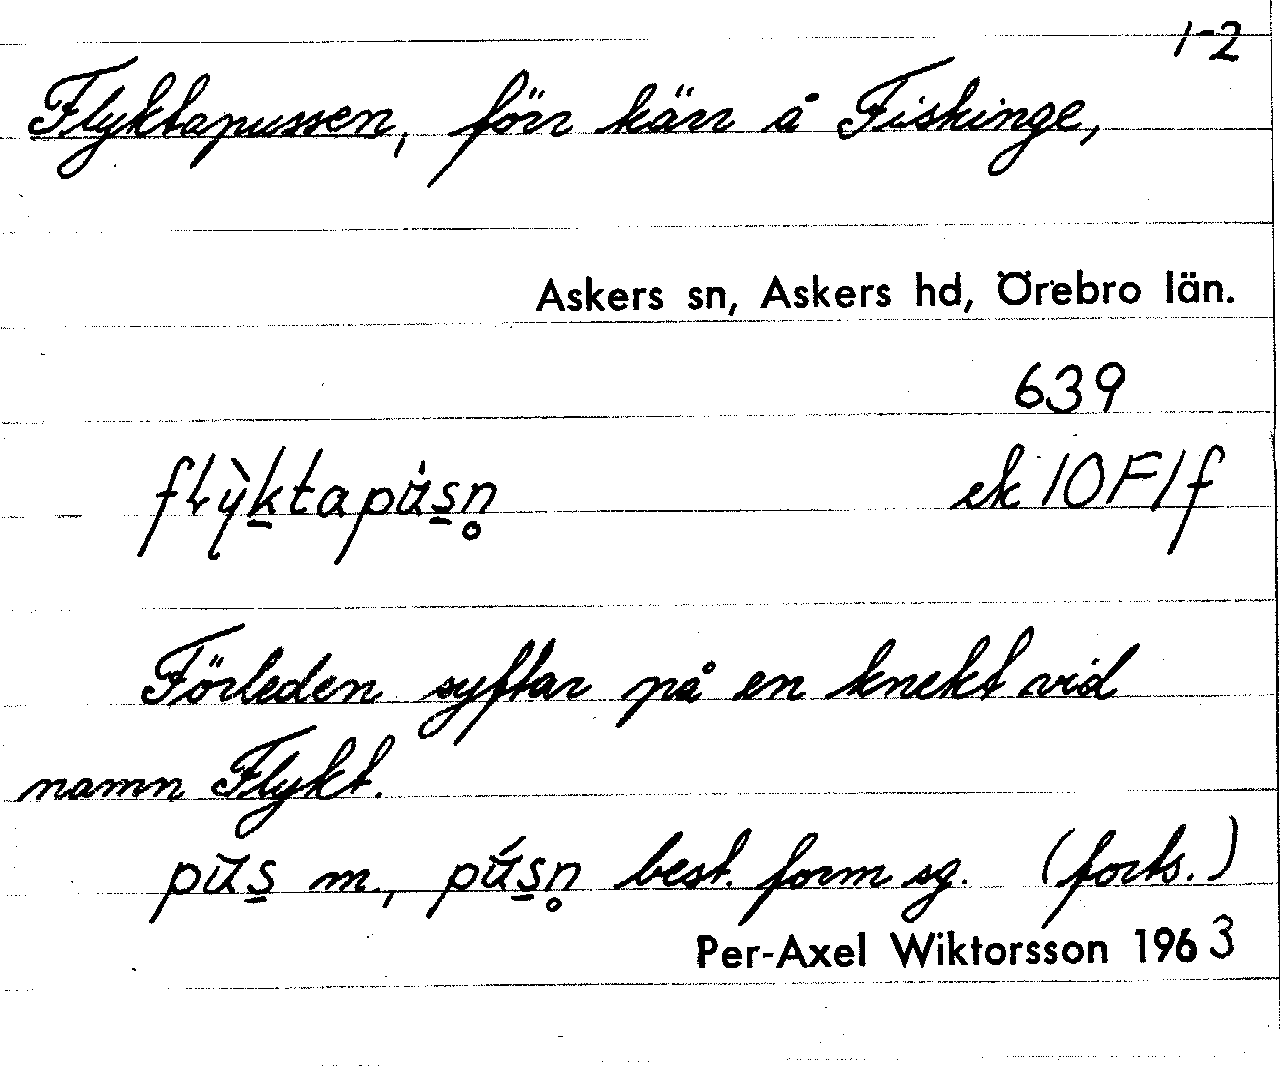 1-2
Flyktapussen, förr kärr å Fiskinge,
Askers sn, Askers hd, Örebro län.
639
ek 10F1f
Förleden syftar på en knekt vid
namn Flykt.
m., best. form sg. (forts.)
Per-Axel Wiktorsson 1963